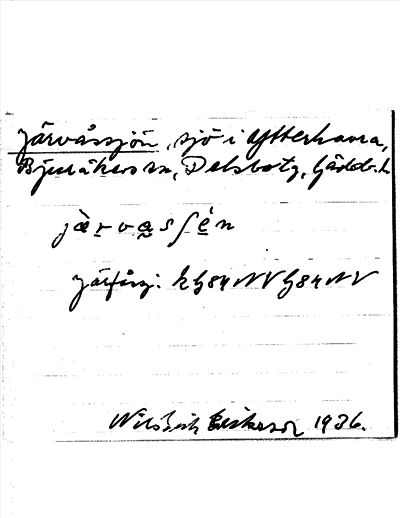 Järvåssjön, sjö i Ytterhavra,
Bjuråkers sn, Delsbotg, Gävleb. l.
jærvɑsʃén
Järfång: k G 84 NV G 84 NV
Nils Erik Eriksson 1936.